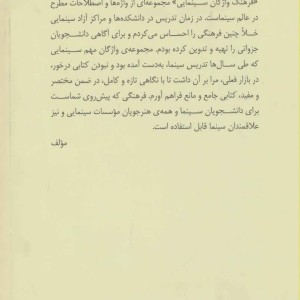 «فرهنگ واژگان سینمایی» مجموعه‌ای از واژه‌ها و اصطلاحات مطرح
در عالم سینماست. در زمان تدریس در دانشکده‌ها و مراکز آزاد سینمایی
خلأ چنین فرهنگی را احساس می‌کردم و برای آگاهی دانشجویان
جزواتی را تهیه و تدوین کرده بودم. مجموعه‌ی واژگان مهم سینمایی
که طی سال‌ها تدریس سینما، به‌دست آمده بود و نبودن کتابی درخور،
در بازار فعلی، مرا بر آن داشت تا با نگاهی تازه و کامل، در ضمن مختصر
و مفید، کتابی جامع و مانع فراهم آورم. فرهنگی که پیش‌روی شماست
برای دانشجویان سینما و همه‌ی هنرجویان مؤسسات سینمایی و نیز
علاقمندان سینما قابل استفاده است.
مؤلف